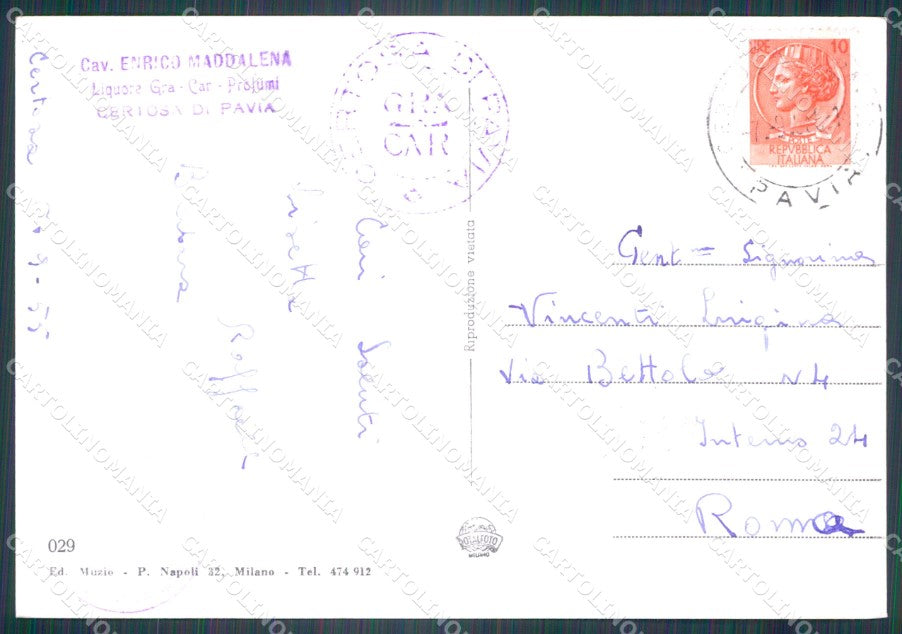 Cav. ENRICO MADDALENA
Liquore Gra - Car - Profumi
CERTOSA DI PAVIA
CERTOSA DI PAVIA
GRA
CAR
LIRE 10
POSTE
REPVBBLICA
ITALIANA
PAVIA
Certosa
Cari Saluti
Raffaele
Riproduzione vietata
Gent= Signorina
Vincenti Luigina
Via Bettolo N 4
Interno 24
Roma
TOTALFOTO
MILANO
029
Ed. Muzio - P. Napoli 32, Milano - Tel. 474 912
CARTOLINOMANIA